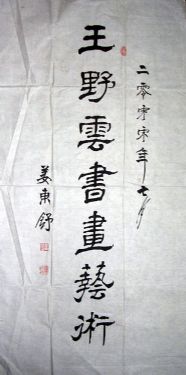 二零零零年七月
王野雲書畫藝術
姜東舒